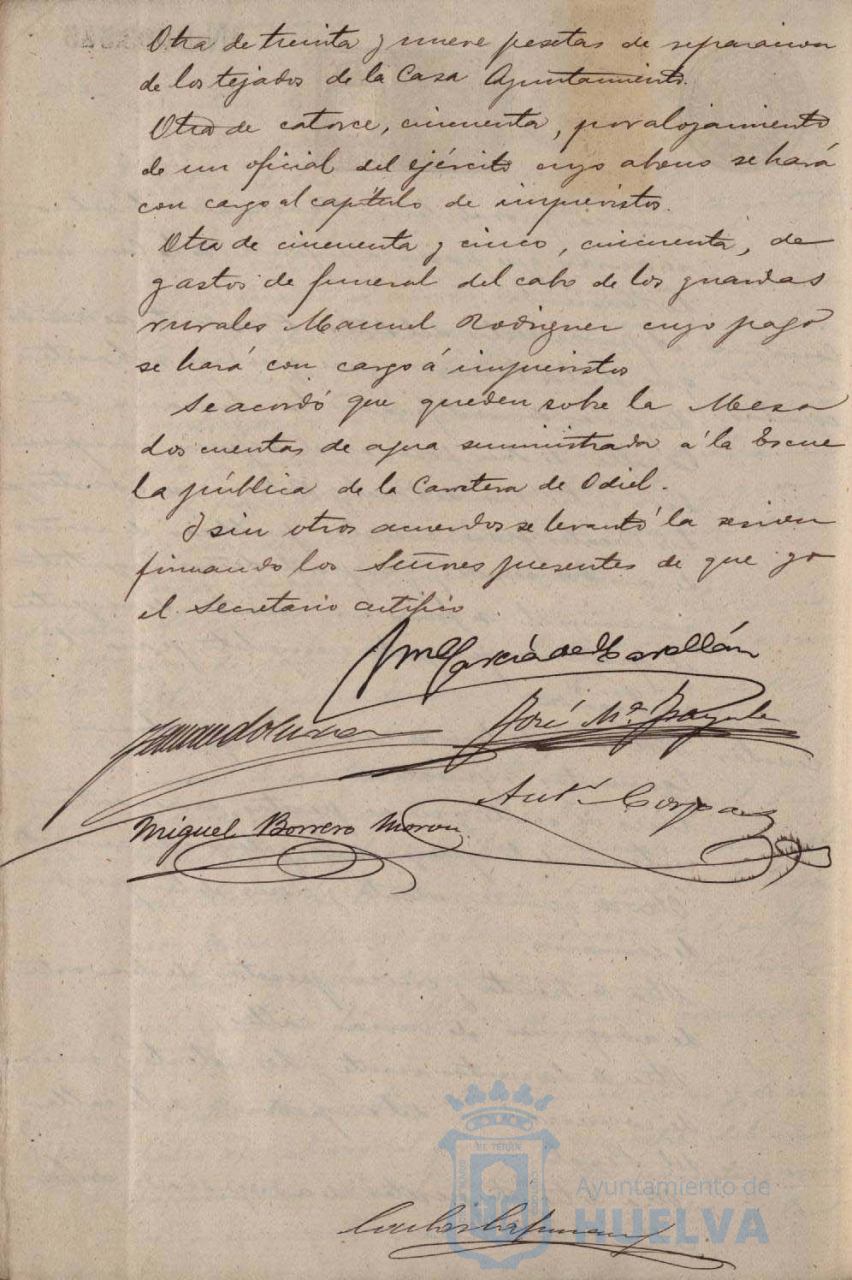 Otra de treinta y nueve pesetas de reparacion
de los tejados de la Casa Ayuntamiento.
Otra de catorce, cincuenta, por alojamiento
de un oficial del ejército cuyo abono se hará
con cargo al capítulo de imprevistos.
Otra de cincuenta y cinco, cincuenta, de
gastos de funeral del cabo de los guardas
rurales Manuel Rodriguez cuyo pago
se hará con cargo á imprevistos
Se acordó que queden sobre la Mesa
dos cuentas de agua suministrada á la Escue
la pública de la Carretera de Odiel.
Y sin otros acuerdos se levantó la sesion
firmando los Señores presentes de que yo
el Secretario certifico
García de
José Mª
Miguel Borrero Moron
Antº
EL TERRA
Ayuntamiento de
HUELVA